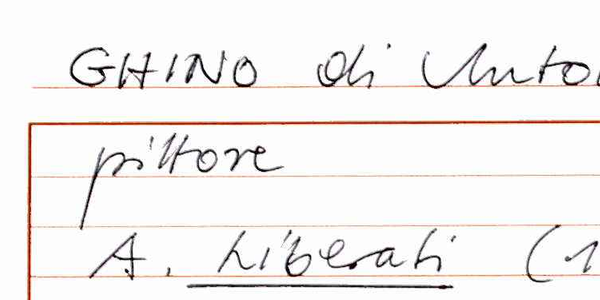 GHINO di Anto
pittore
A. Liberati (1